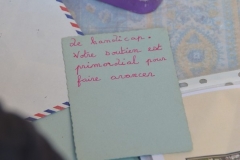 Le handicap.
Votre soutien est
primordial pour
faire avancer